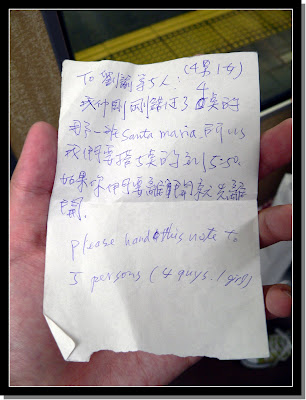 To 劉諭等5人: (4男1女)
我们剛剛錯过了4點的
那一班Santa maria.
我們要搭5點的到5:50.
如果你們要離開就先離
開.
please hand this note to
5 persons (4 guys. 1 girl)